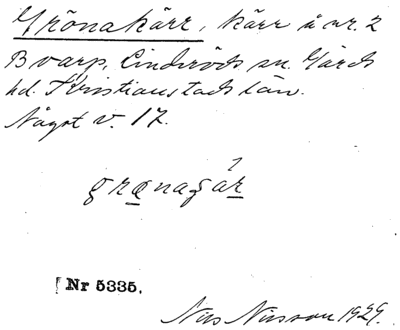 Grönakärr, kärr å nr. 2
Bvarp, Linderöds sn. Gärds
hd. Kristianstads län.
Något v. 17.
grønagár
Nr 5335.
Nils Nilsson 1929.